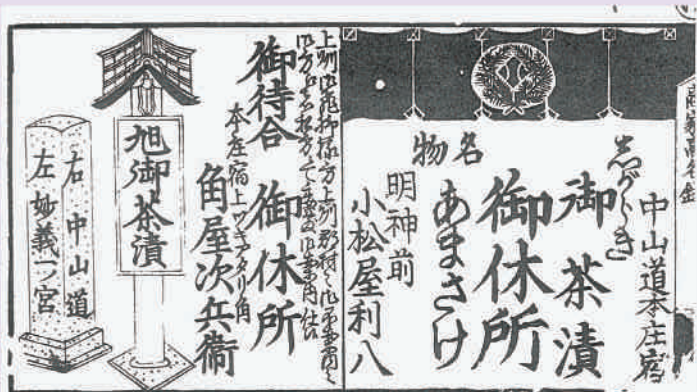 中山道本庄宿
志がらき
御茶漬
御休所
名物
あまさけ
明神前
小松屋利八
御待合 御休所
本庄宿上ツキアタリ角
角屋次兵衛
旭御茶漬
右 中山道
左 妙義一ノ宮